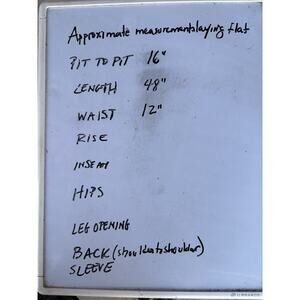 Approximate measurements laying flat
PIT TO PIT 16"
LENGTH 48"
WAIST 12"
RISE
INSEAM
HIPS
LEG OPENING
BACK (shoulder to shoulder)
SLEEVE